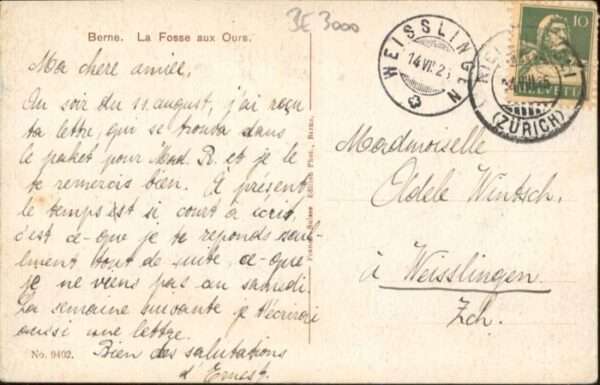 Berne. La Fosse aux Ours.
BE 3000
Ma chere amiée,
Au soir du 11. august, j'ai reçu
ta lettre, qui se trouva dans
le paket pour Mad. R. et je le
te remercis bien. À présent
le temps est si court à écrit,
c'est ce-que je te reponds seul-
lement tout de suite, ce-que
je ne viens pas au samedi.
La semaine suivante je t'écrirai
aussi une lettre.
Bien des salutations
d'Ernest.
No. 9402.
Franco-Suisse Edition Phot., Berne.
WEISSLINGEN
14.VII.2
10
HELVETIA
(ZÜRICH)
Mademoiselle
Adele Wintsch.
à Weisslingen
Zch.